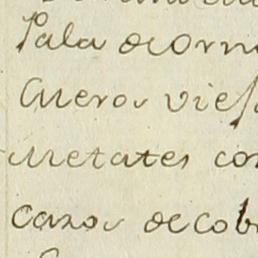 Pala de orn
Cueros vies
Metates con
cazos de cob